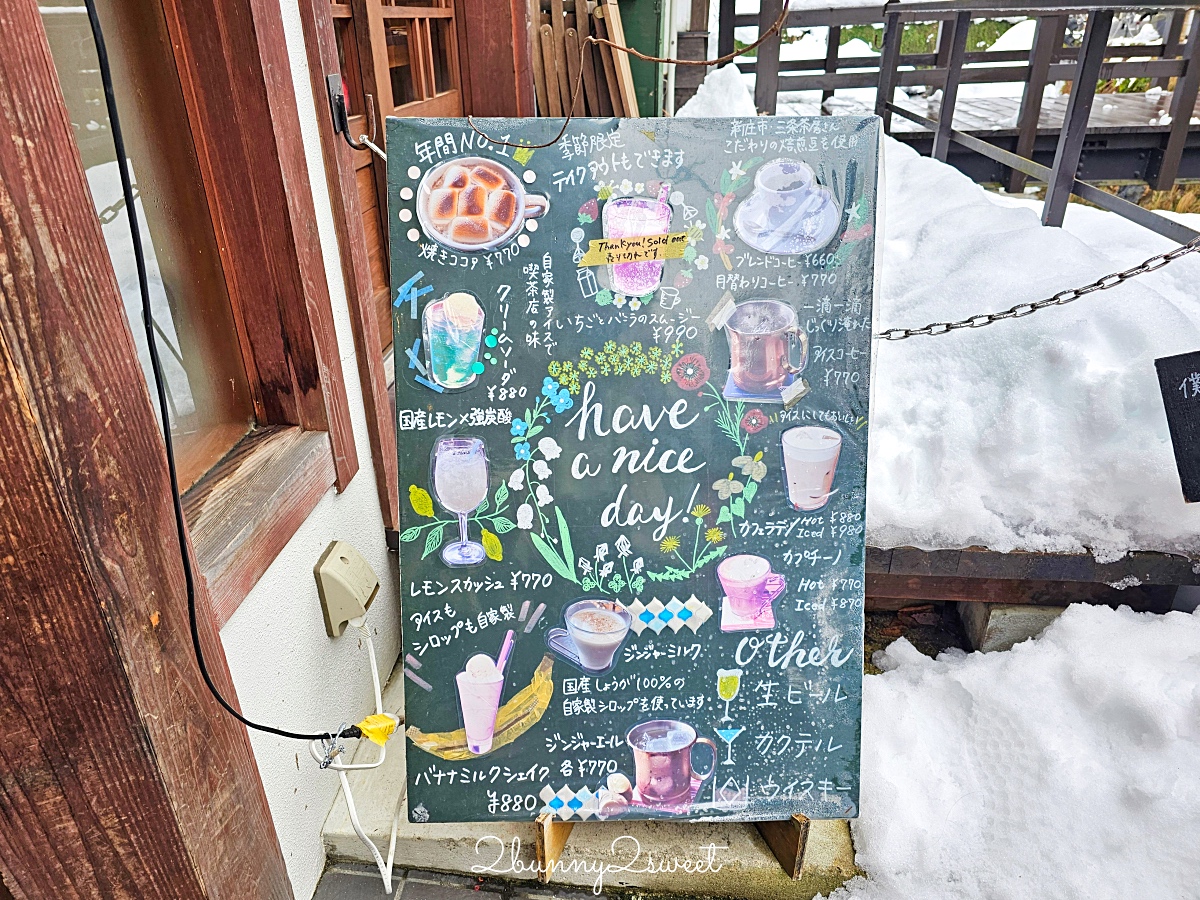 年間No.1
焼きココア ¥770
季節限定
テイクアウトもできます
Thankyou! Sold out
売り切れです。
いちごとバニラのスムージー
¥990
新庄市・三条茶房さん
こだわりの焙煎豆を使用
ブレンドコーヒー ¥660
月替わりコーヒー ¥770
自家製アイスで
喫茶店の味
クリームソーダ
¥880
一滴一滴
じっくり淹れた
アイスコーヒー
¥770
国産レモン×強炭酸
レモンスカッシュ ¥770
have
a nice
day!
アイスにしてもおいしい
カフェラテ Hot ¥880
Iced ¥980
カプチーノ
Hot ¥770
Iced ¥870
アイスも
シロップも自家製
バナナミルクシェイク
¥880
ジンジャーミルク
国産しょうが100%の
自家製シロップを使っています
ジンジャーエール
各¥770
other
生ビール
カクテル
ウイスキー
僕
2bunny2sweet